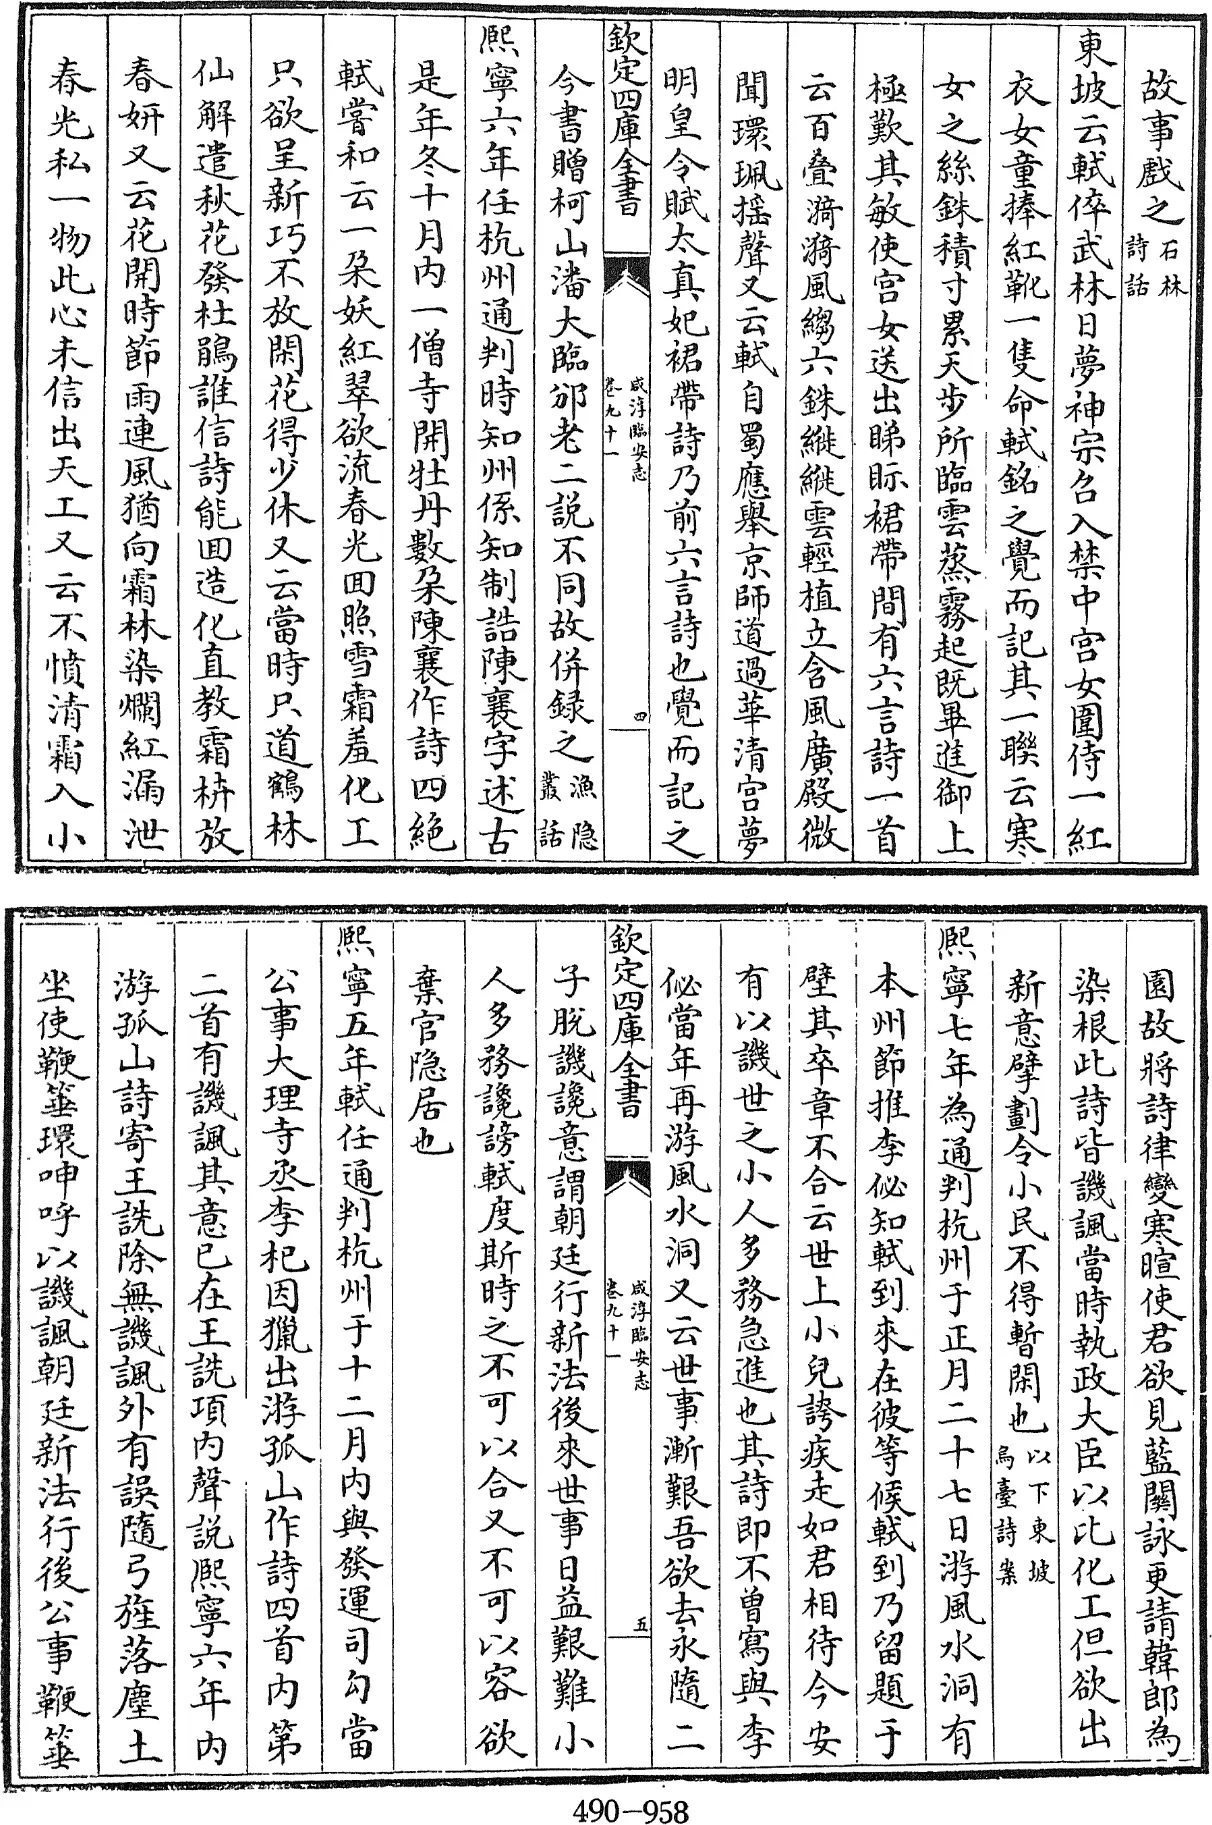 故事戲之石林詩話
東坡云軾倅武林日夢神宗召入禁中宮女圍侍一紅
衣女童捧紅靴一隻命軾銘之覺而記其一聯云寒
女之絲銖積寸累天步所臨雲蒸霧起既畢進御上
極歎其敏使宮女送出睇眎裙帶間有六言詩一首
云百疊漪漪風縐六銖縰縰雲輕植立含風廣殿微
聞環珮摇聲又云軾自蜀應舉京師道過華清宮夢
明皇令賦太真妃裙帶詩乃前六言詩也覺而記之
欽定四庫全書 咸淳臨安志 卷九十一 四
今書贈柯山潘大臨邠老二説不同故併録之漁隐叢話
熙寧六年任杭州通判時知州係知制誥陳襄字述古
是年冬十月内一僧寺開牡丹數朶陳襄作詩四絶
軾嘗和云一朶妖紅翠欲流春光回照雪霜羞化工
只欲呈新巧不放閑花得少休又云當時只道鶴林
仙解遣秋花發杜鵑誰信詩能回造化直教霜枿放
春妍又云花開時節雨連風猶向霜林染爛紅漏泄
春光私一物此心未信出天工又云不憤清霜入小
園故將詩律變寒暄使君欲見藍關詠更請韓郎為
染根此詩皆譏諷當時執政大臣以比化工但欲出
新意擘劃令小民不得暫閑也以下東坡烏臺詩案
熙寧七年為通判杭州于正月二十七日游風水洞有
本州節推李佖知軾到來在彼等候軾到乃留題于
壁其卒章不合云世上小兒誇疾走如君相待今安
有以譏世之小人多務急進也其詩即不曾寫與李
佖當年再游風水洞又云世事漸艱吾欲去永隨二
欽定四庫全書 咸淳臨安志 卷九十一 五
子脱譏讒意謂朝廷行新法後來世事日益艱難小
人多務讒謗軾度斯時之不可以合又不可以容欲
棄官隐居也
熙寧五年軾任通判杭州于十二月内與發運司勾當
公事大理寺丞李杞因獵出游孤山作詩四首内第
二首有譏諷其意已在王詵項内聲説熙寧六年内
游孤山詩寄王詵除無譏諷外有誤隨弓旌落塵土
坐使鞭箠環呻呼以譏諷朝廷新法行後公事鞭箠
490-958